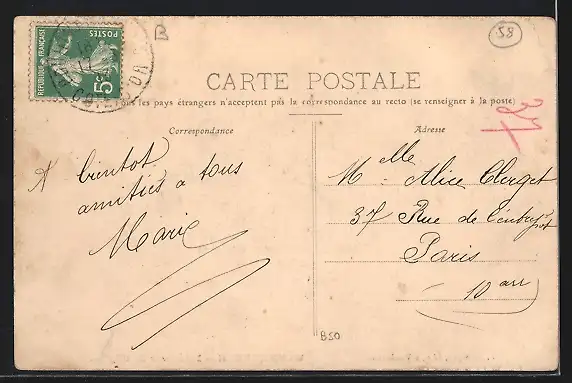 REPUBLIQUE FRANÇAISE
POSTES
5c
COTE-D'OR
B
58
CARTE POSTALE
Tous les pays étrangers n'acceptent pas la correspondance au recto (se renseigner à la poste)
37
Correspondance
Adresse
A bientot
amitiés a tous
Marie
Mlle Alice Clerget
37 Rue de l'entrepot
Paris
10 arr
B50